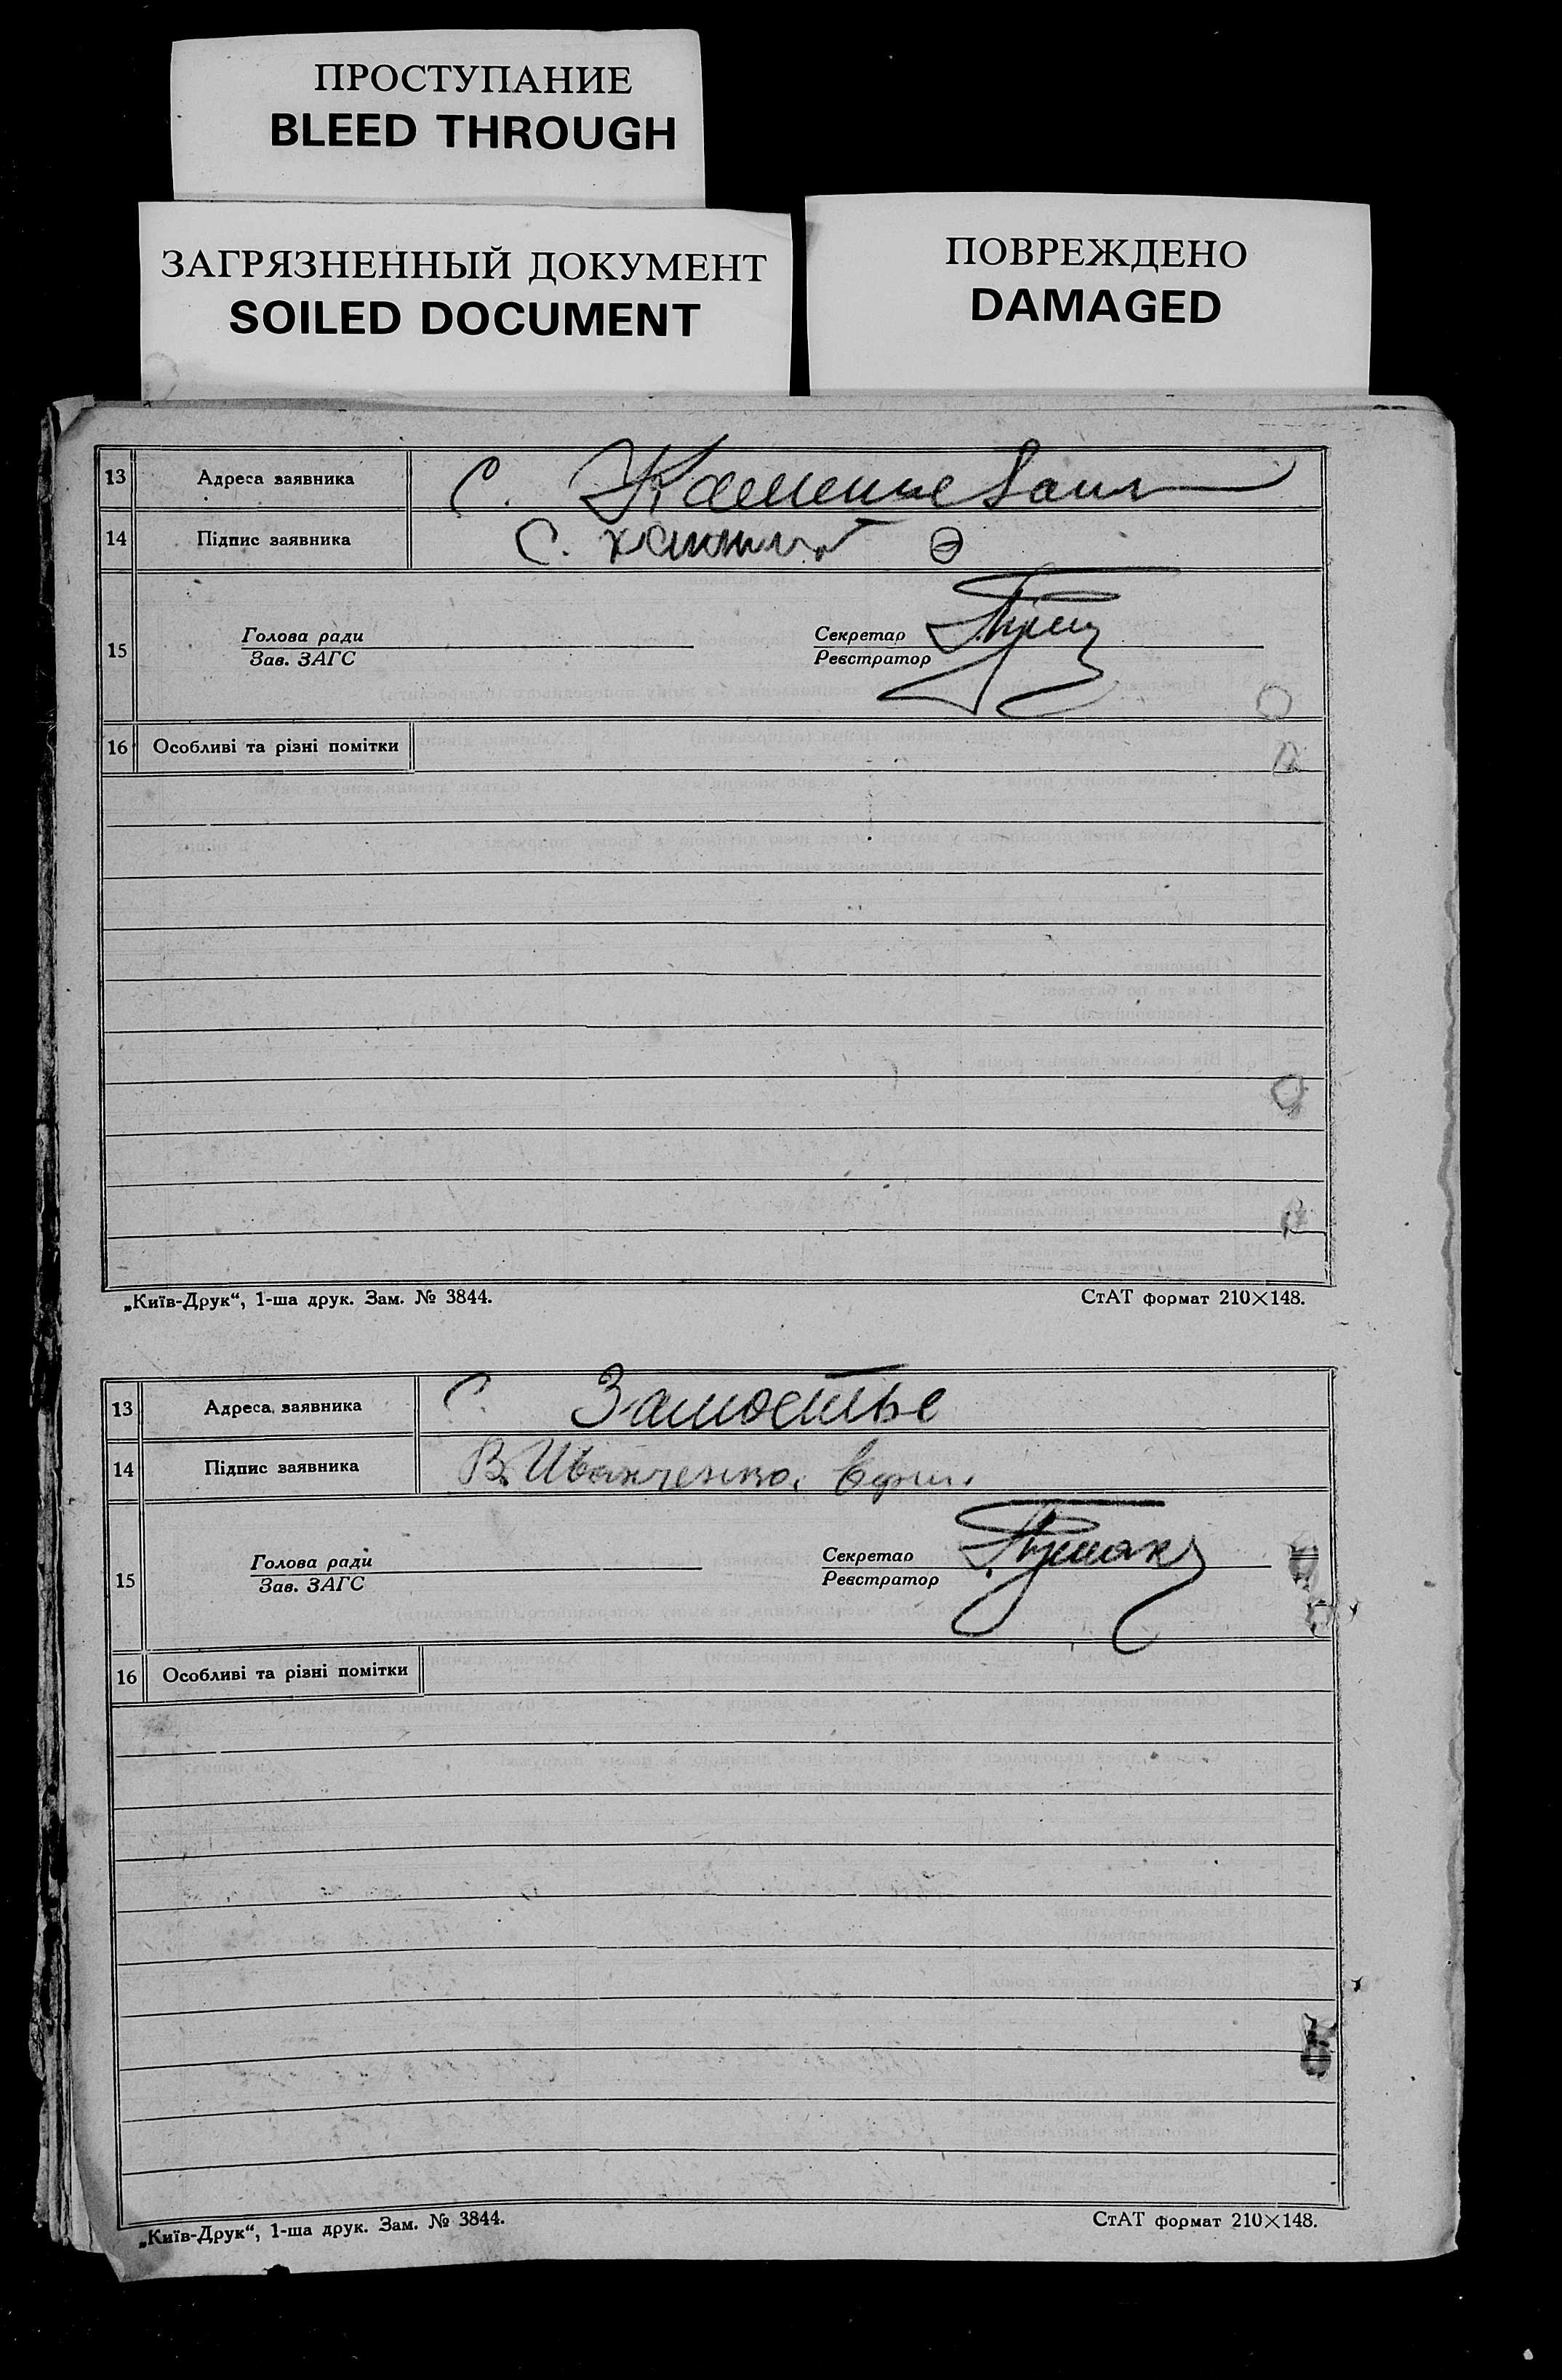 ПРОСТУПАНИЕ
BLEED THROUGH
ЗАГРЯЗНЕННЫЙ ДОКУМЕНТ
SOILED DOCUMENT
ПОВРЕЖДЕНО
DAMAGED
13 Адреса заявника С.
14 Підпис заявника С.
15 Голова ради Секретар
Зав. ЗАГС Реєстратор
16 Особливі та різні помітки
„Київ-Друк“, 1-ша друк. Зам. № 3844. СтАТ формат 210×148.
13 Адреса заявника С. Замостье
14 Підпис заявника В. Иванченко.
15 Голова ради Секретар
Зав. ЗАГС Реєстратор
16 Особливі та різні помітки
„Київ-Друк“, 1-ша друк. Зам. № 3844. СтАТ формат 210×148.